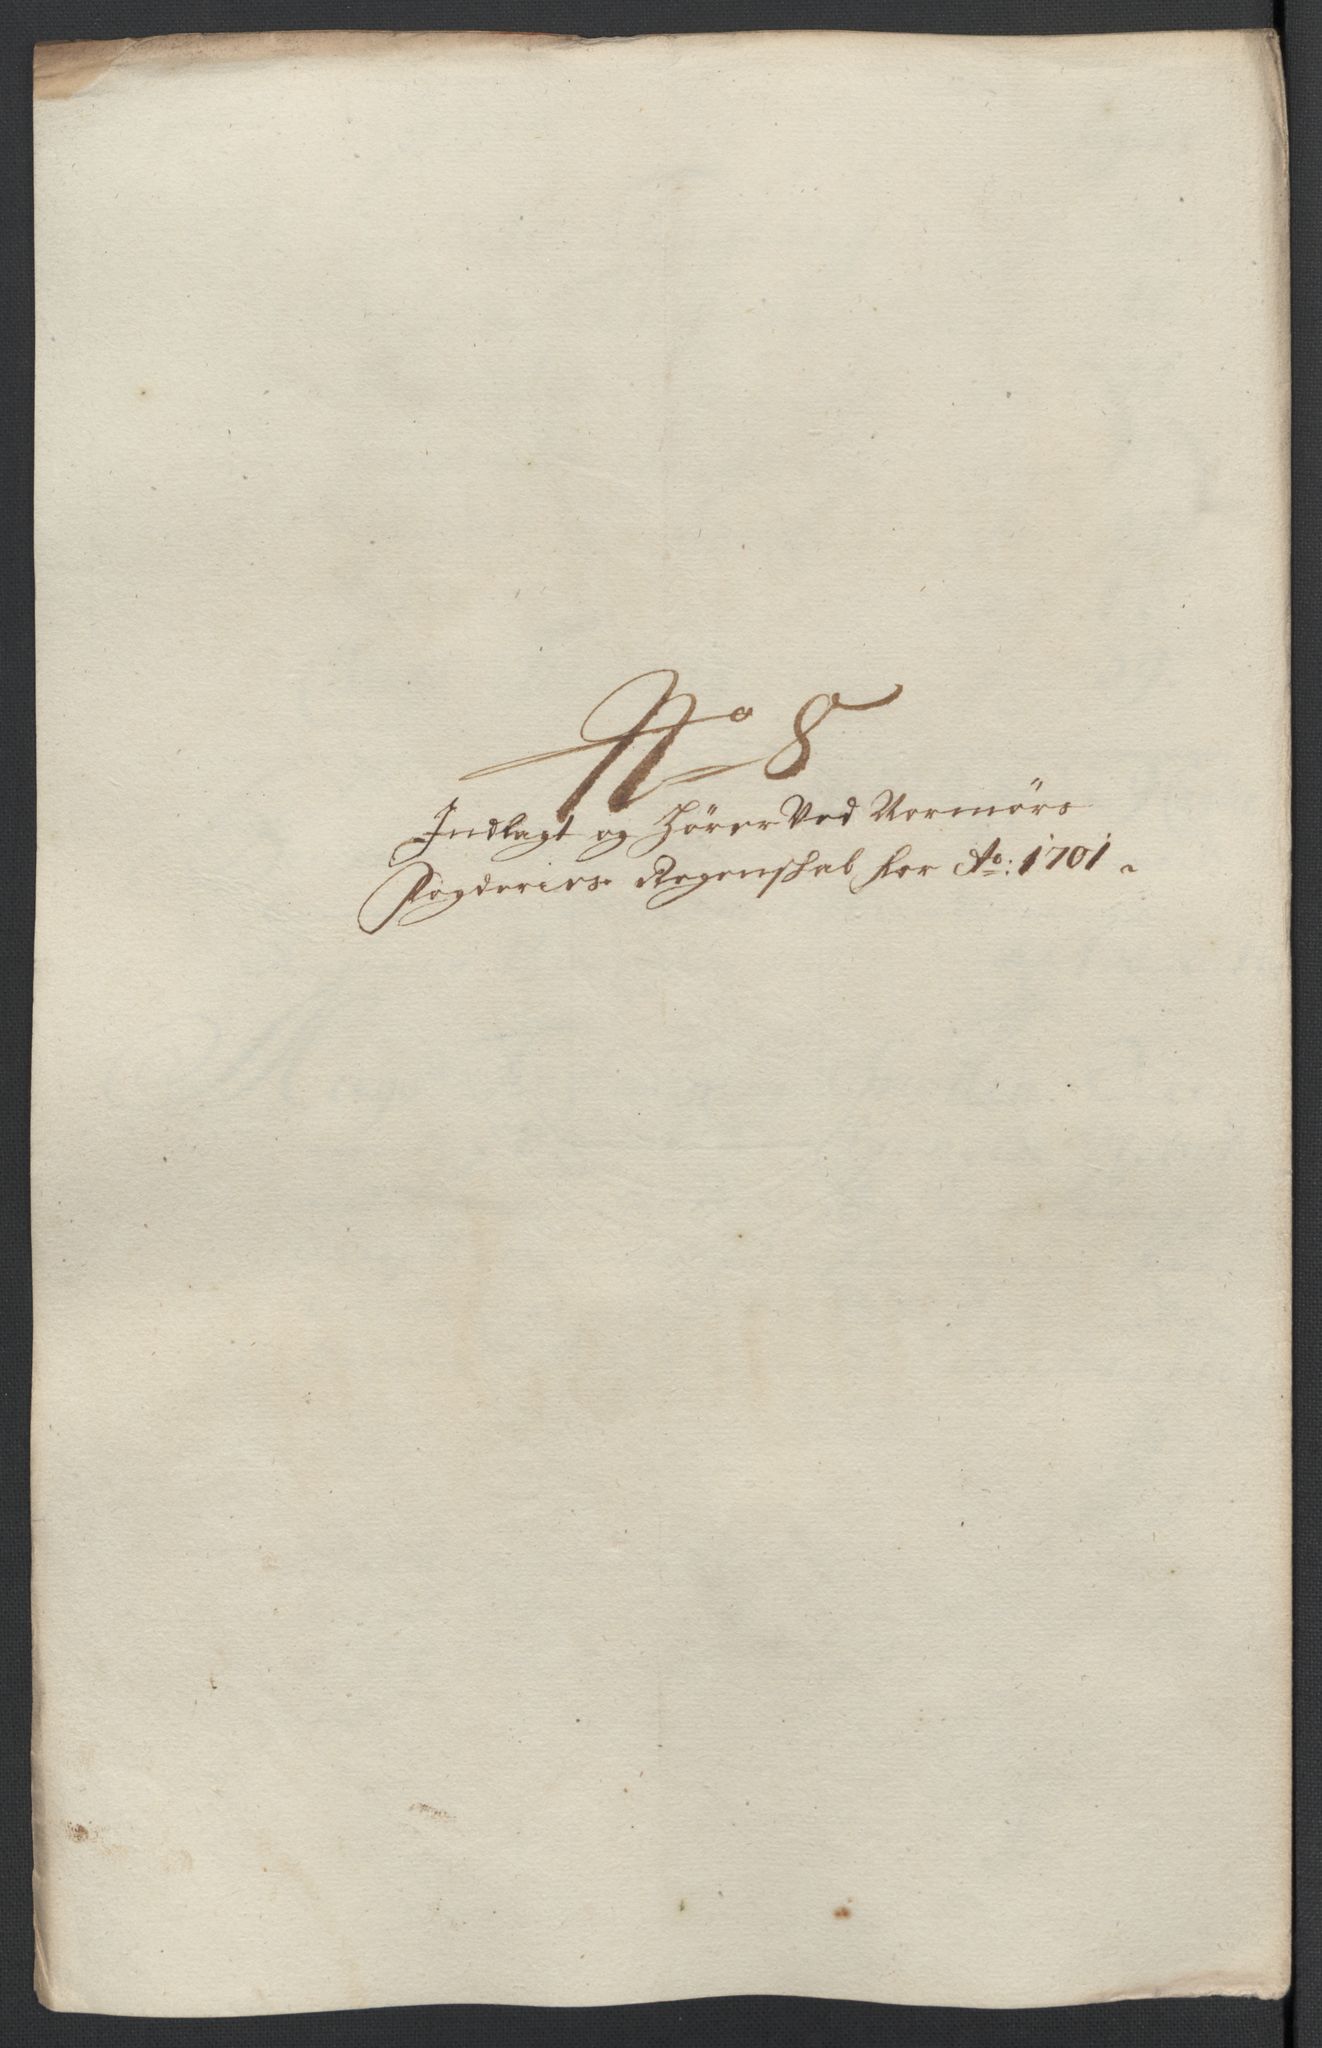 No 8
Indlagt og Hörer Ved Normörs
Fogderies Regenskab for Ao: 1701